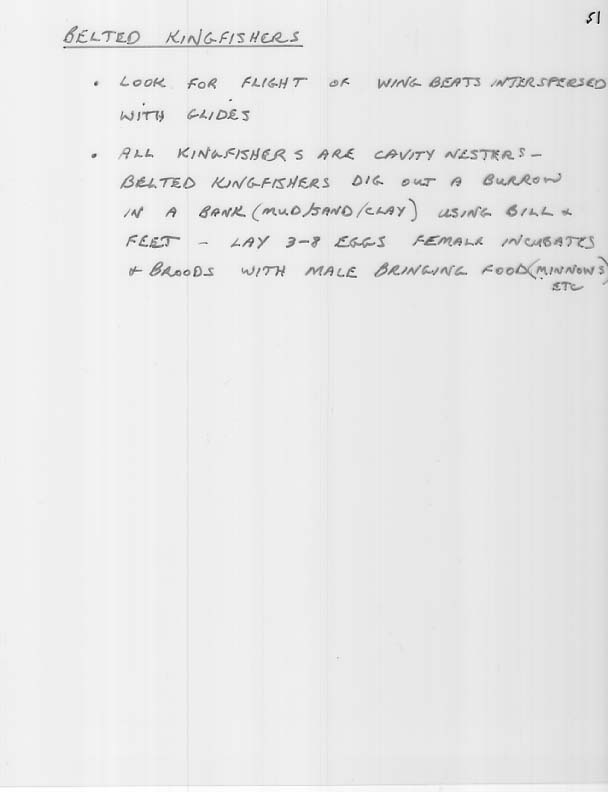 51
BELTED KINGFISHERS
• LOOK FOR FLIGHT OF WING BEATS INTERSPERSED
WITH GLIDES
• ALL KINGFISHERS ARE CAVITY NESTERS –
BELTED KINGFISHERS DIG OUT A BURROW
IN A BANK (MUD/SAND/CLAY) USING BILL &
FEET – LAY 3-8 EGGS FEMALE INCUBATES
& BROODS WITH MALE BRINGING FOOD (MINNOWS)
ETC